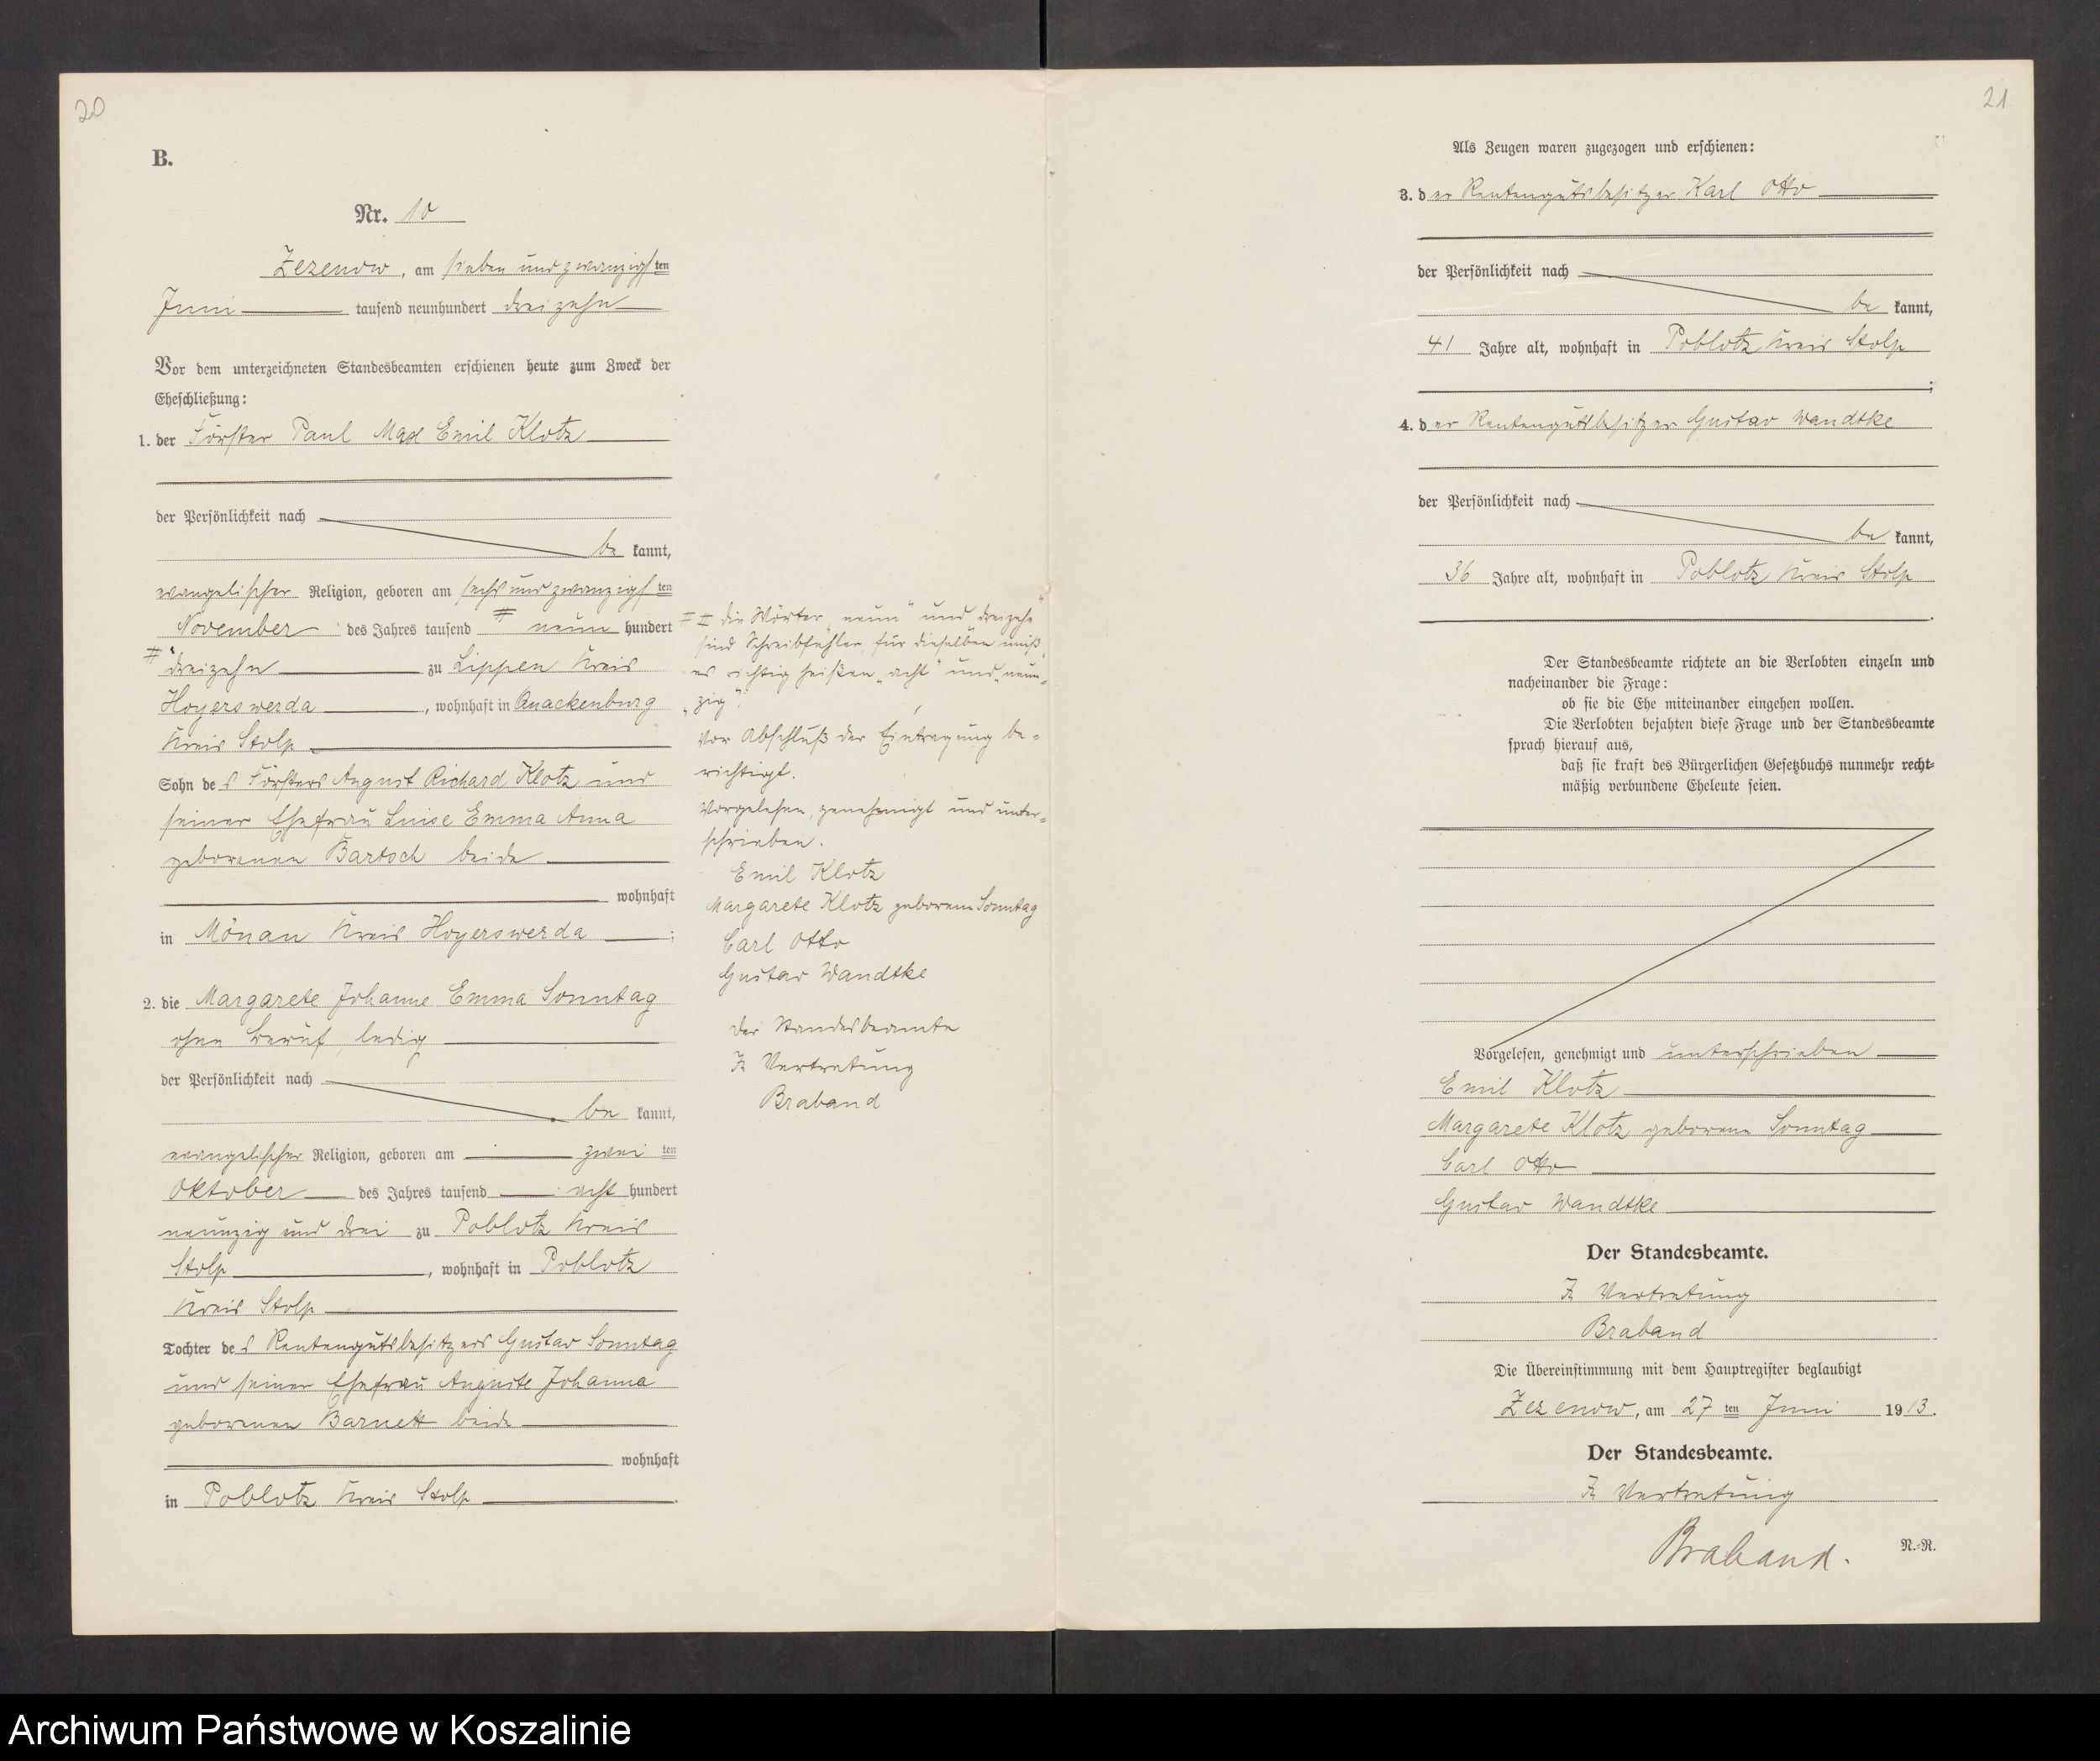 20
B.
Nr. 10
Zezenow, am sieben und zwanzigsten
Juni tausend neunhundert dreizehn
Vor dem unterzeichneten Standesbeamten erschienen heute zum Zweck der
Eheschließung:
1. der Förster Paul Max Emil Klotz
der Persönlichkeit nach
be kannt,
evangelischer Religion, geboren am sechs und zwanzigsten
November des Jahres tausend # neun hundert
# dreizehn zu Lippen Kreis
Hoyerswerda, wohnhaft in Quackenburg
Kreis Stolp
Sohn des Försters August Richard Klotz und
seiner Ehefrau Luise Emma Anna
geborenen Bartsch beide
wohnhaft
in Mönau Kreis Hoyerswerda;
2. die Margarete Johanne Emma Sonntag
ohne Beruf, ledig
der Persönlichkeit nach
be kannt,
evangelischer Religion, geboren am zwei ten
Oktober des Jahres tausend acht hundert
neunzig und drei zu Poblotz Kreis
Stolp, wohnhaft in Poblotz
Kreis Stolp
Tochter des Rentengutsbesitzers Gustav Sonntag
und seiner Ehefrau Auguste Johanna
geborenen Barnett beide
wohnhaft
in Poblotz Kreis Stolp.
# # die Wörter „neun" und „dreizehn"
sind Schreibfehler, für dieselben muß
es richtig heißen „acht" und „neun-
zig".
Vor Abschluß der Eintragung be-
richtigt.
Vorgelesen, genehmigt und unter-
schrieben.
Emil Klotz
Margarete Klotz geborene Sonntag
Carl Otto
Gustav Wandtke
Der Standesbeamte
In Vertretung
Braband
21
Als Zeugen waren zugezogen und erschienen:
3. der Rentengutsbesitzer Karl Otto
der Persönlichkeit nach
be kannt,
41 Jahre alt, wohnhaft in Poblotz Kreis Stolp
;
4. der Rentengutsbesitzer Gustav Wandtke
der Persönlichkeit nach
be kannt,
36 Jahre alt, wohnhaft in Poblotz Kreis Stolp
.
Der Standesbeamte richtete an die Verlobten einzeln und
nacheinander die Frage:
ob sie die Ehe miteinander eingehen wollen.
Die Verlobten bejahten diese Frage und der Standesbeamte
sprach hierauf aus,
daß sie kraft des Bürgerlichen Gesetzbuchs nunmehr recht-
mäßig verbundene Eheleute seien.
Vorgelesen, genehmigt und unterschrieben
Emil Klotz
Margarete Klotz geborene Sonntag
Carl Otto
Gustav Wandtke
Der Standesbeamte.
In Vertretung
Braband
Die Übereinstimmung mit dem Hauptregister beglaubigt
Zezenow, am 27 ten Juni 1913.
Der Standesbeamte.
In Vertretung
Braband.
N.-R.
Archiwum Państwowe w Koszalinie